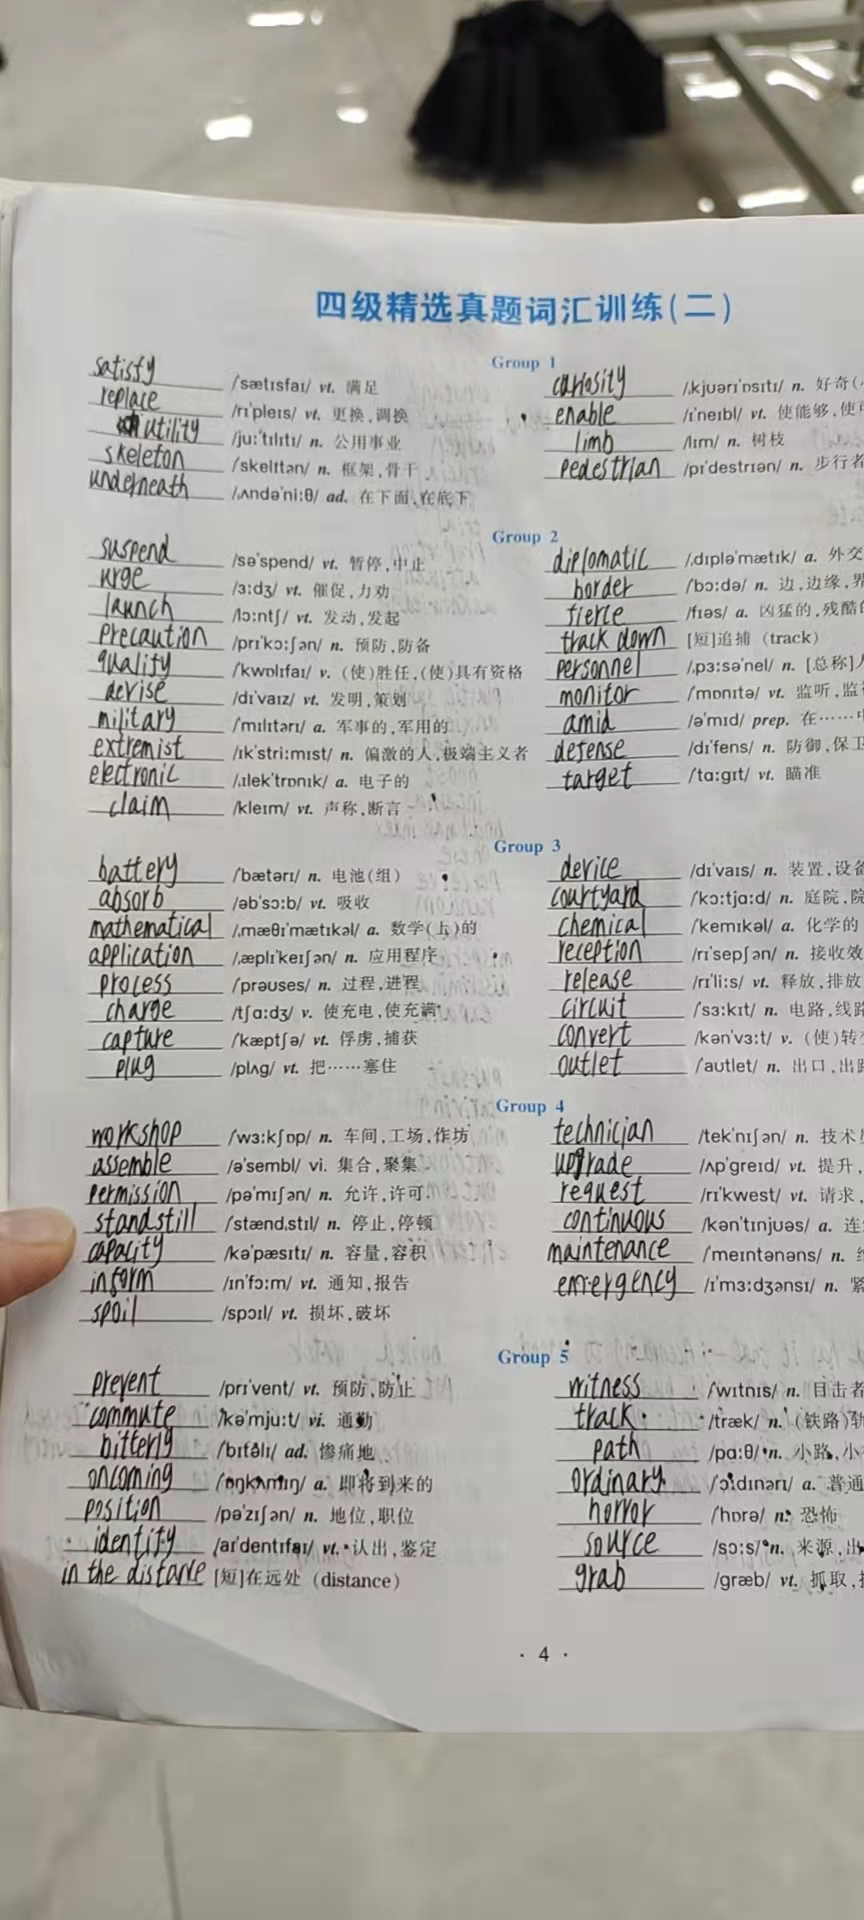 四级精选真题词汇训练(二)
Group 1
satisfy /ˈsætɪsfaɪ/ vt. 满足
replace /rɪˈpleɪs/ vt. 更换,调换
utility /juːˈtɪlɪtɪ/ n. 公用事业
skeleton /ˈskelɪtən/ n. 框架,骨干
underneath /ˌʌndəˈniːθ/ ad. 在下面,在底下
curiosity /ˌkjʊərɪˈɒsɪtɪ/ n. 好奇(
enable /ɪˈneɪbl/ vt. 使能够,使
limb /lɪm/ n. 树枝
pedestrian /pɪˈdestrɪən/ n. 步行者
Group 2
suspend /səˈspend/ vt. 暂停,中止
urge /ɜːdʒ/ vt. 催促,力劝
launch /lɔːntʃ/ vt. 发动,发起
precaution /prɪˈkɔːʃən/ n. 预防,防备
qualify /ˈkwɒlɪfaɪ/ v. (使)胜任,(使)具有资格
devise /dɪˈvaɪz/ vt. 发明,策划
military /ˈmɪlɪtərɪ/ a. 军事的,军用的
extremist /ɪkˈstriːmɪst/ n. 偏激的人,极端主义者
electronic /ˌɪlekˈtrɒnɪk/ a. 电子的
claim /kleɪm/ vt. 声称,断言
diplomatic /ˌdɪpləˈmætɪk/ a. 外交
border /ˈbɔːdə/ n. 边,边缘,界
fierce /fɪəs/ a. 凶猛的,残酷的
track down [短]追捕 (track)
personnel /ˌpɜːsəˈnel/ n. [总称]人
monitor /ˈmɒnɪtə/ vt. 监听,监
amid /əˈmɪd/ prep. 在……中
defense /dɪˈfens/ n. 防御,保卫
target /ˈtɑːgɪt/ vt. 瞄准
Group 3
battery /ˈbætərɪ/ n. 电池(组)
absorb /əbˈsɔːb/ vt. 吸收
mathematical /ˌmæθɪˈmætɪkəl/ a. 数学(上)的
application /ˌæplɪˈkeɪʃən/ n. 应用程序
process /ˈprəʊses/ n. 过程,进程
charge /tʃɑːdʒ/ v. 使充电,使充满
capture /ˈkæptʃə/ vt. 俘虏,捕获
plug /plʌg/ vt. 把……塞住
device /dɪˈvaɪs/ n. 装置,设备
courtyard /ˈkɔːtjɑːd/ n. 庭院,院
chemical /ˈkemɪkəl/ a. 化学的
reception /rɪˈsepʃən/ n. 接收效
release /rɪˈliːs/ vt. 释放,排放
circuit /ˈsɜːkɪt/ n. 电路,线路
convert /kənˈvɜːt/ v. (使)转变
outlet /ˈaʊtlet/ n. 出口,出路
Group 4
workshop /ˈwɜːkʃɒp/ n. 车间,工场,作坊
assemble /əˈsembl/ vi. 集合,聚集
permission /pəˈmɪʃən/ n. 允许,许可
standstill /ˈstændˌstɪl/ n. 停止,停顿
capacity /kəˈpæsɪtɪ/ n. 容量,容积
inform /ɪnˈfɔːm/ vt. 通知,报告
spoil /spɔɪl/ vt. 损坏,破坏
technician /tekˈnɪʃən/ n. 技术员
upgrade /ʌpˈgreɪd/ vt. 提升,
request /rɪˈkwest/ vt. 请求,
continuous /kənˈtɪnjʊəs/ a. 连
maintenance /ˈmeɪntənəns/ n.
emergency /ɪˈmɜːdʒənsɪ/ n. 紧
Group 5
prevent /prɪˈvent/ vt. 预防,防止
commute /kəˈmjuːt/ vi. 通勤
bitterly /ˈbɪtəlɪ/ ad. 惨痛地
oncoming /ˈɒnkʌmɪŋ/ a. 即将到来的
position /pəˈzɪʃən/ n. 地位,职位
identify /aɪˈdentɪfaɪ/ vt. 认出,鉴定
in the distance [短]在远处 (distance)
witness /ˈwɪtnɪs/ n. 目击者
track /træk/ n. (铁路)轨
path /pɑːθ/ n. 小路,小
ordinary /ˈɔːdɪnərɪ/ a. 普通
horror /ˈhɒrə/ n. 恐怖
source /sɔːs/ n. 来源,出
grab /græb/ vt. 抓取,
· 4 ·